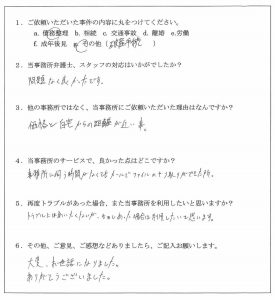 1. ご依頼いただいた事件の内容に丸をつけてください。
a. 債務整理 b. 相続 c. 交通事故 d. 離婚 e.労働
f. 成年後見 g. その他（
2. 当事務所弁護士、スタッフの対応はいかがでしたか？
問題なく良かったです。
3. 他の事務所ではなく、当事務所にご依頼いただいた理由はなんですか？
価格と自宅からの距離が近い事。
4. 当事務所のサービスで、良かった点はどこですか？
事務所に伺う時間がなくてもメールでファイルのやり取りができた所。
5. 再度トラブルがあった場合、また当事務所を利用したいと思いますか？
トラブルとはあいたくないが、もしあった場合は利用したいと思います。
6. その他、ご意見、ご感想などありましたら、ご記入お願いします。
大変、お世話になりました。
ありがとうございました。